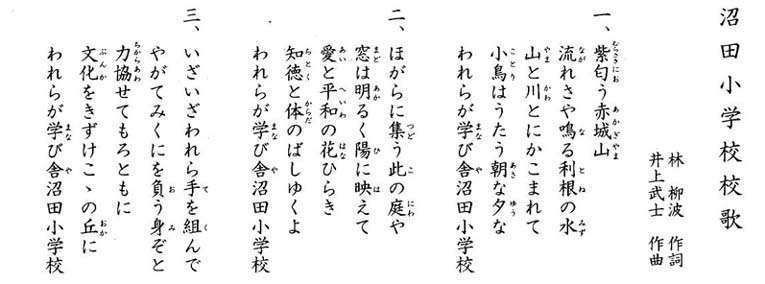 沼田小学校校歌
林 柳波 作詞
井上武士 作曲
一、紫匂う赤城山
流れさや鳴る利根の水
山と川とにかこまれて
小鳥はうたう朝な夕な
われらが学び舎沼田小学校
二、ほがらに集う此の庭や
窓は明るく陽に映えて
愛と平和の花ひらき
知徳と体のばしゆくよ
われらが学び舎沼田小学校
三、いざいざわれら手を組んで
やがてみくにを負う身ぞと
力協せてもろともに
文化をきずけこゝの丘に
われらが学び舎沼田小学校